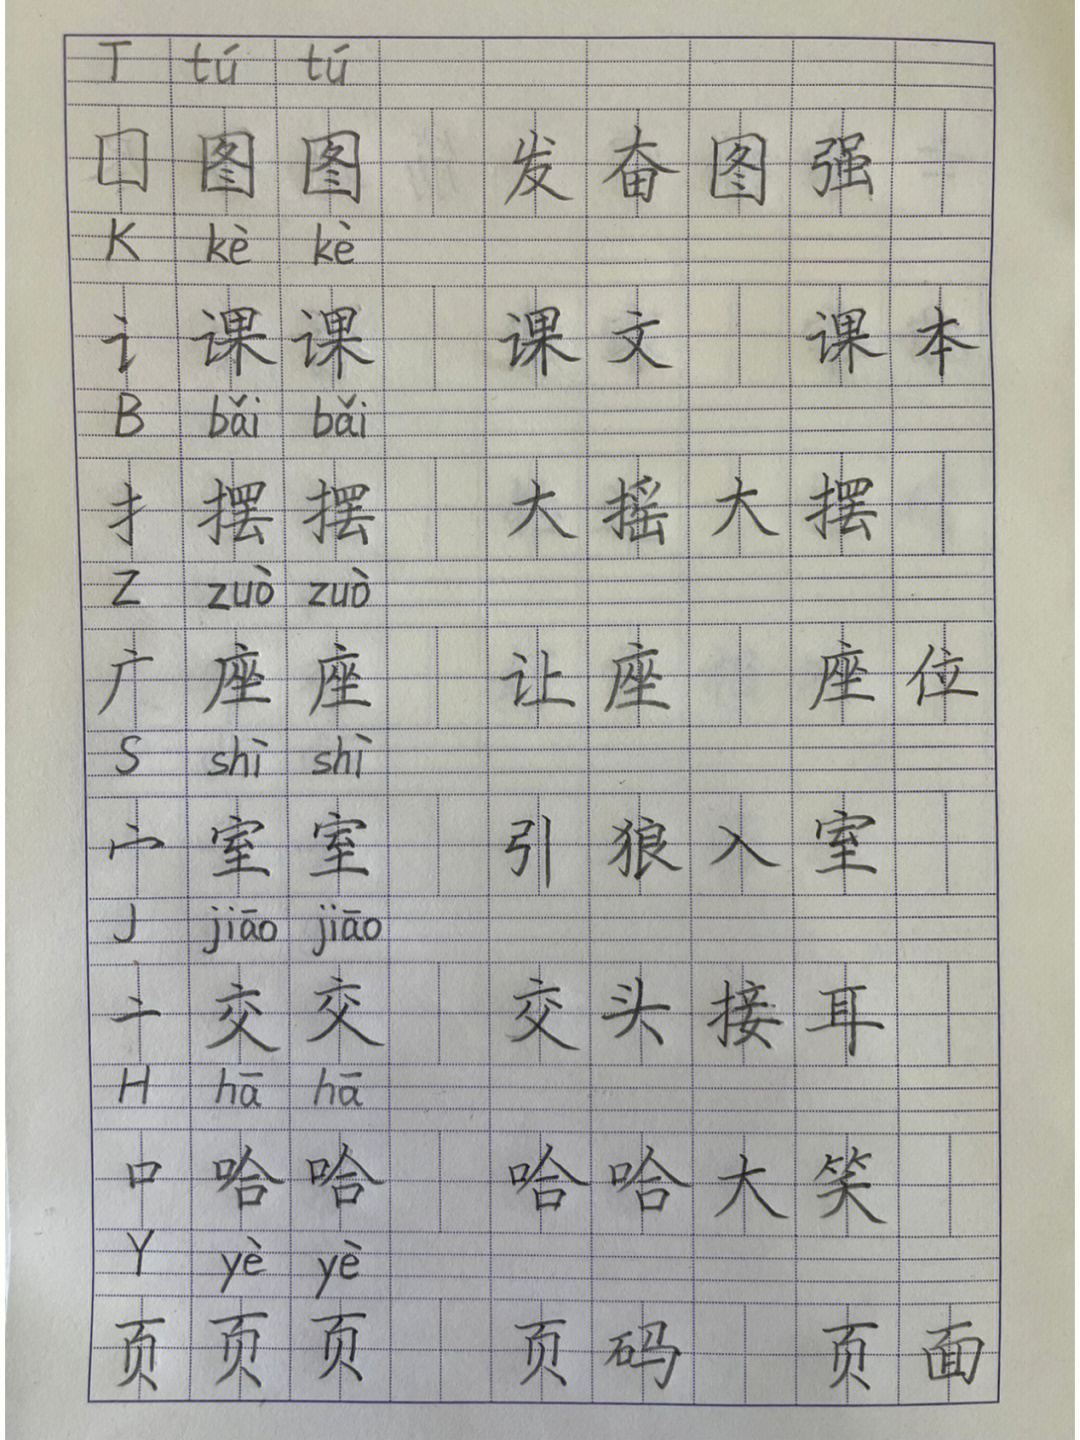 T tú tú
囗 图 图 发 奋 图 强
K kè kè
讠 课 课 课 文 课 本
B bǎi bǎi
扌 摆 摆 大 摇 大 摆
Z zuò zuò
广 座 座 让 座 座 位
S shì shì
宀 室 室 引 狼 入 室
J jiāo jiāo
亠 交 交 交 头 接 耳
H hā hā
口 哈 哈 哈 哈 大 笑
Y yè yè
页 页 页 页 码 页 面